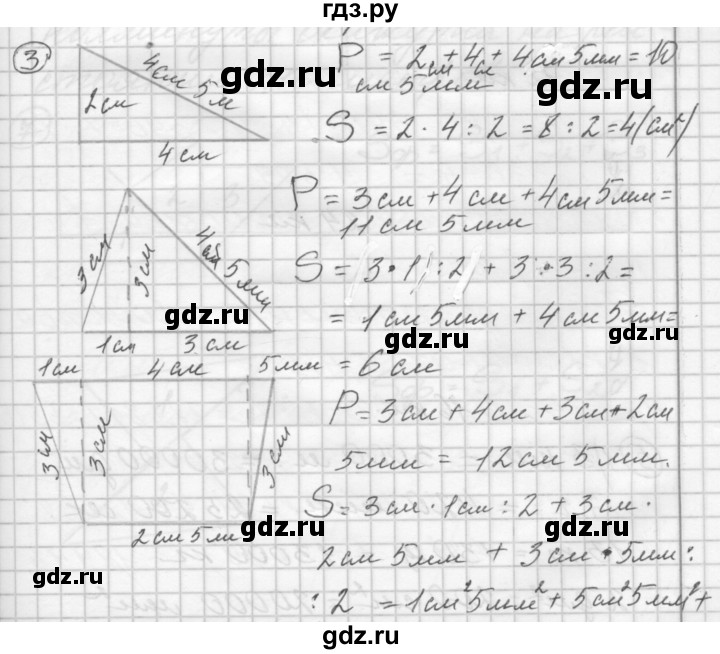 гдз.ру
3.
4см 5м
2см
4 см
P = 2см + 4см + 4см 5мм = 10
см 5мм
S = 2 · 4 : 2 = 8 : 2 = 4 (см²)
gdz.ru
gdz.ru
3см
3см
4см 5мм
1см
3 см
P = 3см + 4см + 4см 5мм =
11см 5мм
S = (3 · 1) : 2 + 3 · 3 : 2 =
= 1см 5мм + 4см 5мм =
= 6см
gdz.ru
gdz.ru
1см
4см
5мм
3см
3см
3см
2см 5мм
P = 3см + 4см + 3см + 2см
5мм = 12см 5мм.
S = 3см · 1см : 2 + 3см ·
2см 5мм + 3см · 5мм :
: 2 = 1см² 5мм² + 5см² 5мм² +
gdz.ru
gdz.ru
gdz.ru
gdz.ru
gdz.ru